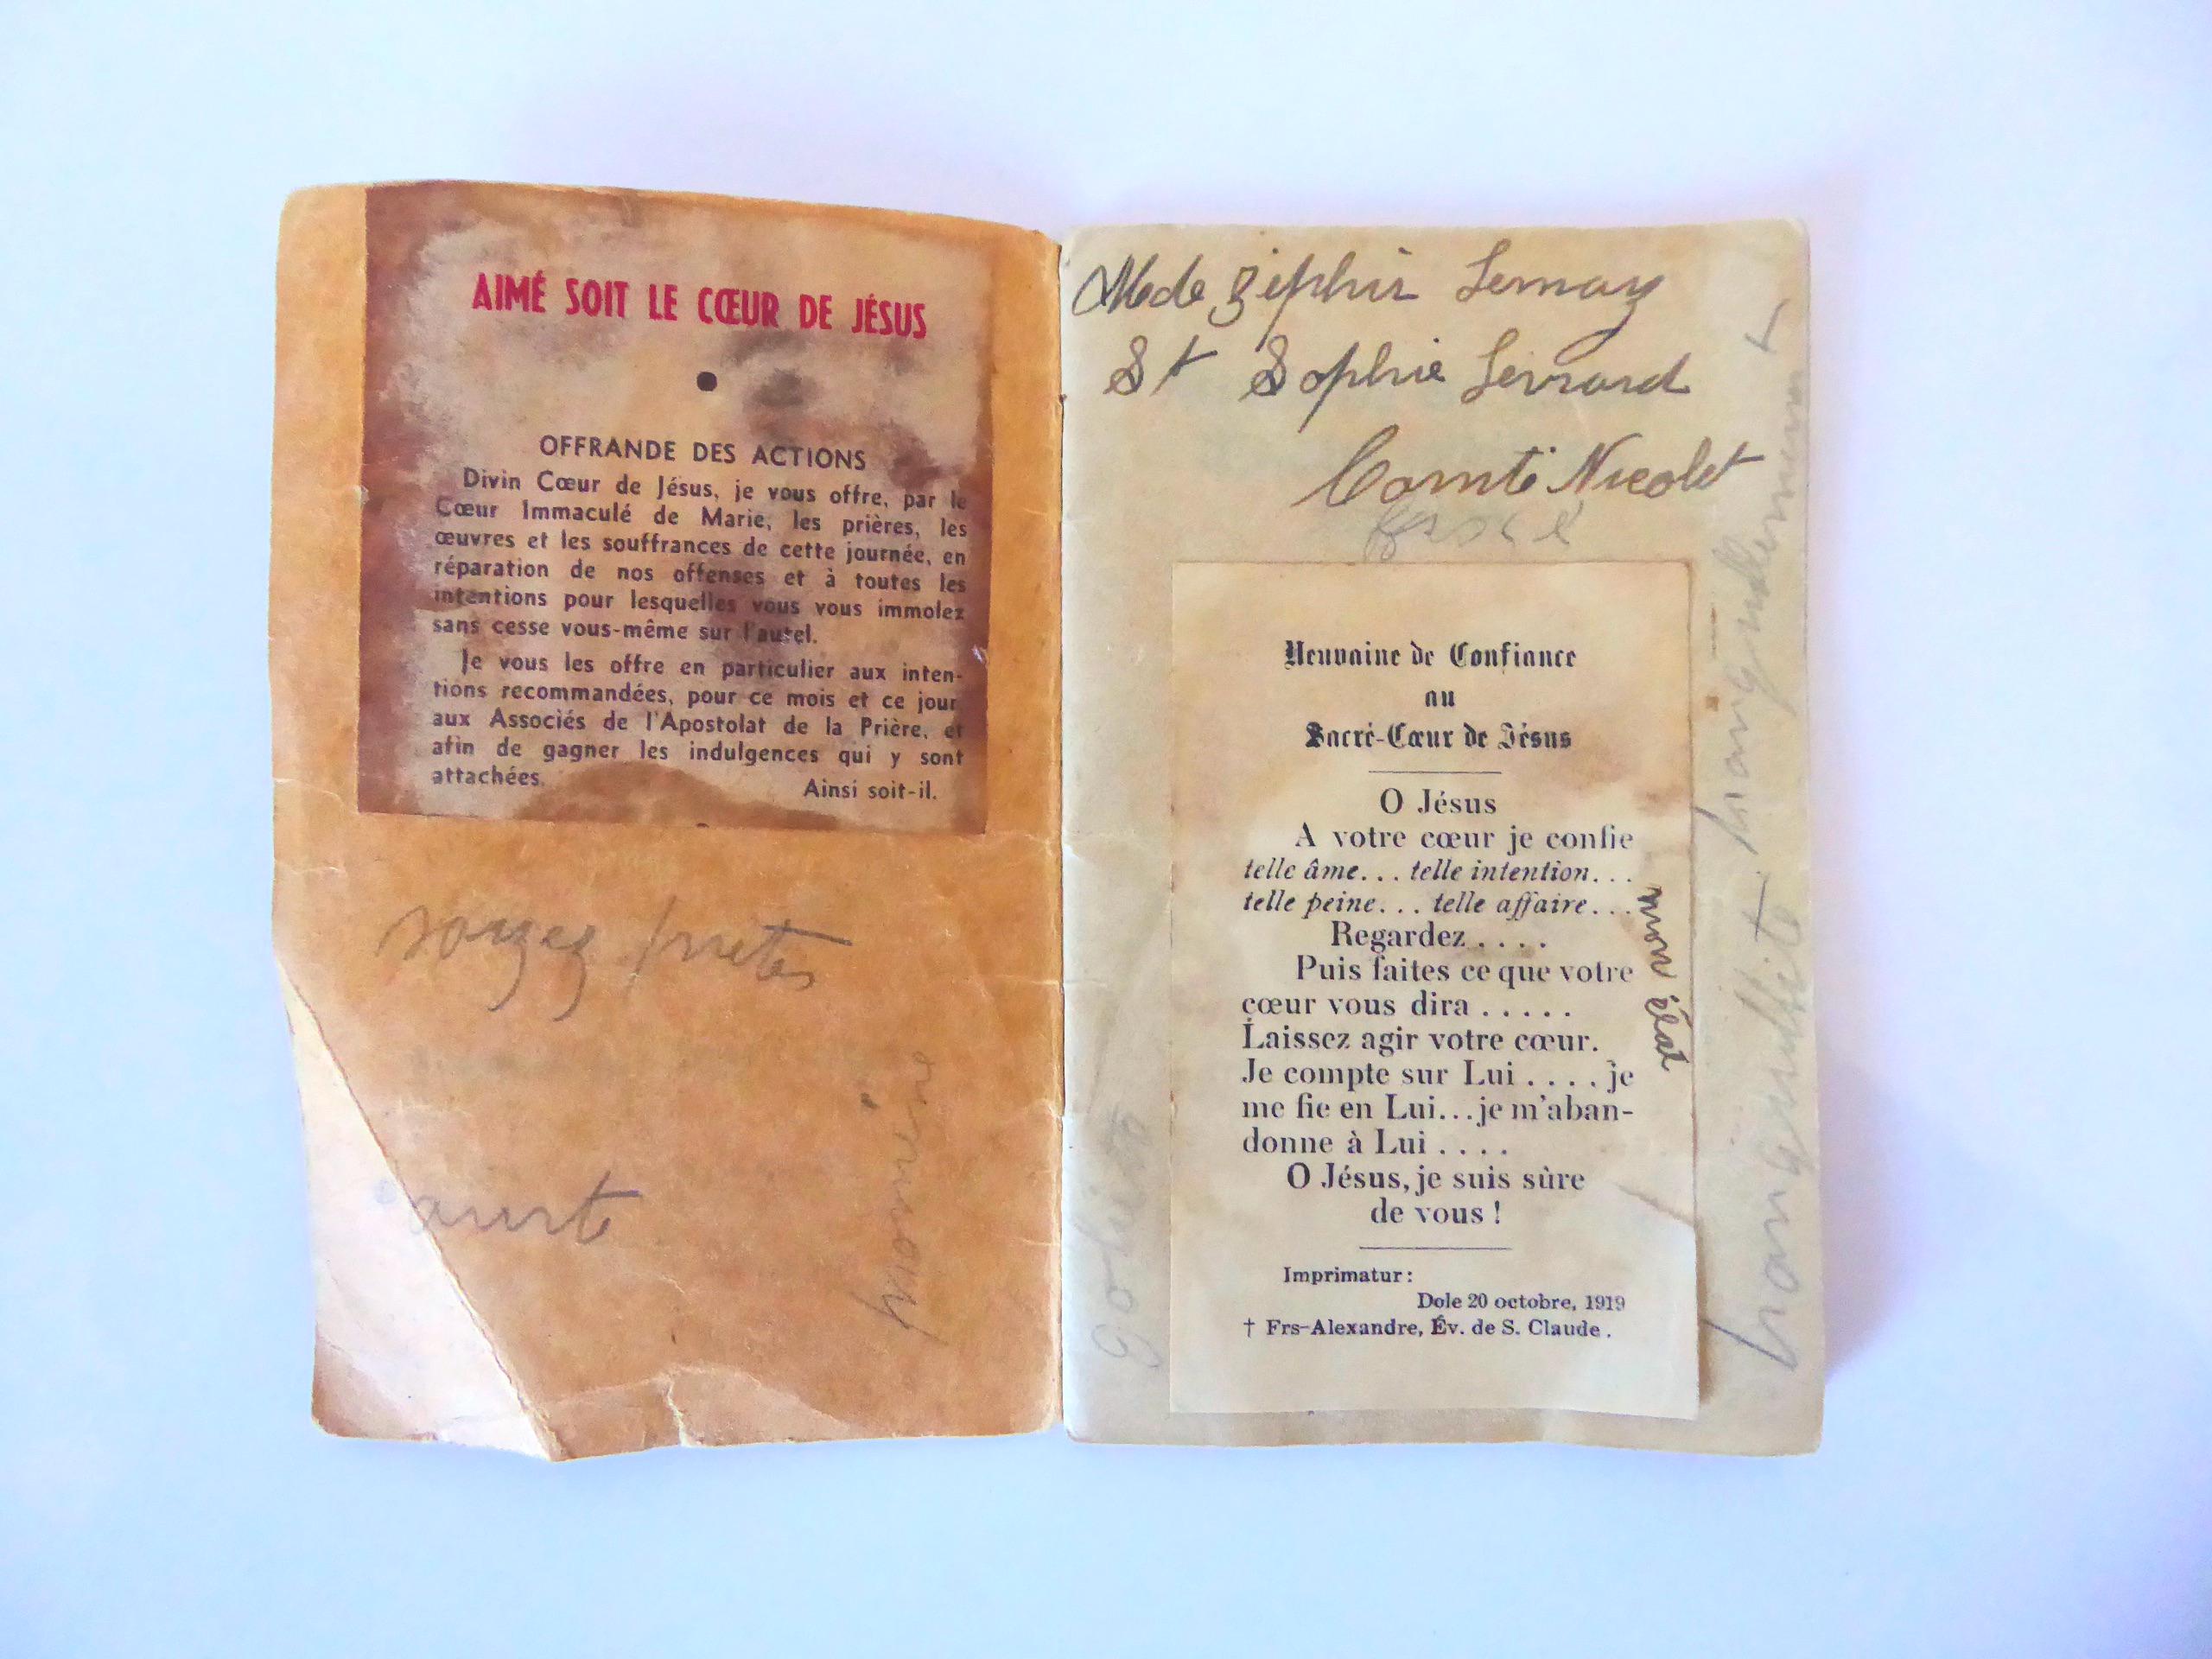 AIMÉ SOIT LE CŒUR DE JÉSUS
OFFRANDE DES ACTIONS
Divin Cœur de Jésus, je vous offre, par le
Cœur Immaculé de Marie, les prières, les
œuvres et les souffrances de cette journée, en
réparation de nos offenses et à toutes les
intentions pour lesquelles vous vous immolez
sans cesse vous-même sur l'autel.
Je vous les offre en particulier aux inten-
tions recommandées, pour ce mois et ce jour
aux Associés de l'Apostolat de la Prière, et
afin de gagner les indulgences qui y sont
attachées.
Ainsi soit-il.
soyez
Zéphir Lemay
St Sophie Levrard
Comté Nicolet
Neuvaine de Confiance
au
Sacré-Cœur de Jésus
O Jésus
A votre cœur je confie
telle âme... telle intention...
telle peine... telle affaire...
Regardez ....
Puis faites ce que votre
cœur vous dira .....
Laissez agir votre cœur.
Je compte sur Lui .... je
me fie en Lui...je m'aban-
donne à Lui ....
O Jésus, je suis sûre
de vous !
Imprimatur :
Dole 20 octobre, 1919
† Frs-Alexandre, Év. de S. Claude .
mon état